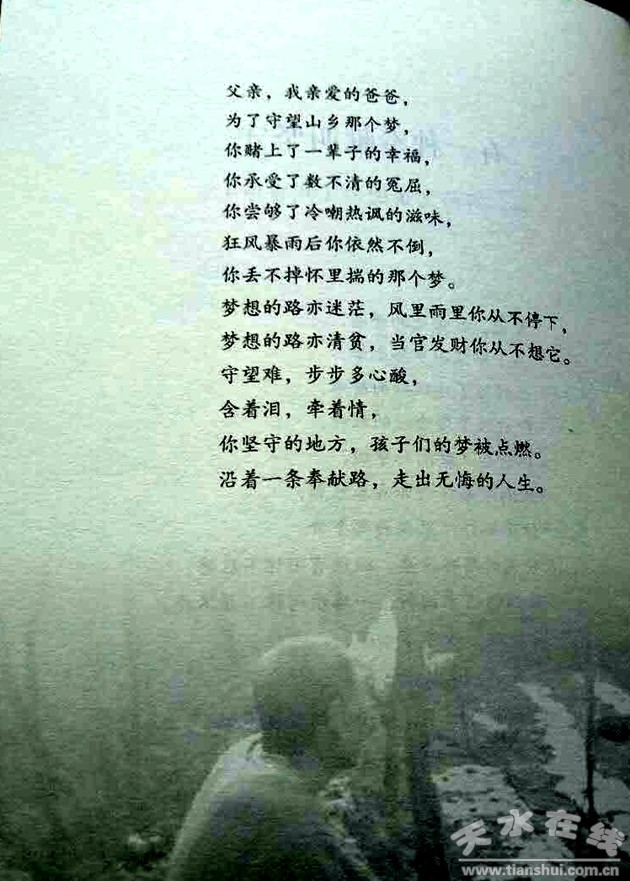 父亲，我亲爱的爸爸，
为了守望山乡那个梦，
你赌上了一辈子的幸福，
你承受了数不清的冤屈，
你尝够了冷嘲热讽的滋味，
狂风暴雨后你依然不倒，
你丢不掉怀里揣的那个梦。
梦想的路亦迷茫，风里雨里你从不停下，
梦想的路亦清贫，当官发财你从不想它。
守望难，步步多心酸，
含着泪，牵着情，
你坚守的地方，孩子们的梦被点燃。
沿着一条奉献路，走出无悔的人生。
天水在线
www.tianshui.com.cn